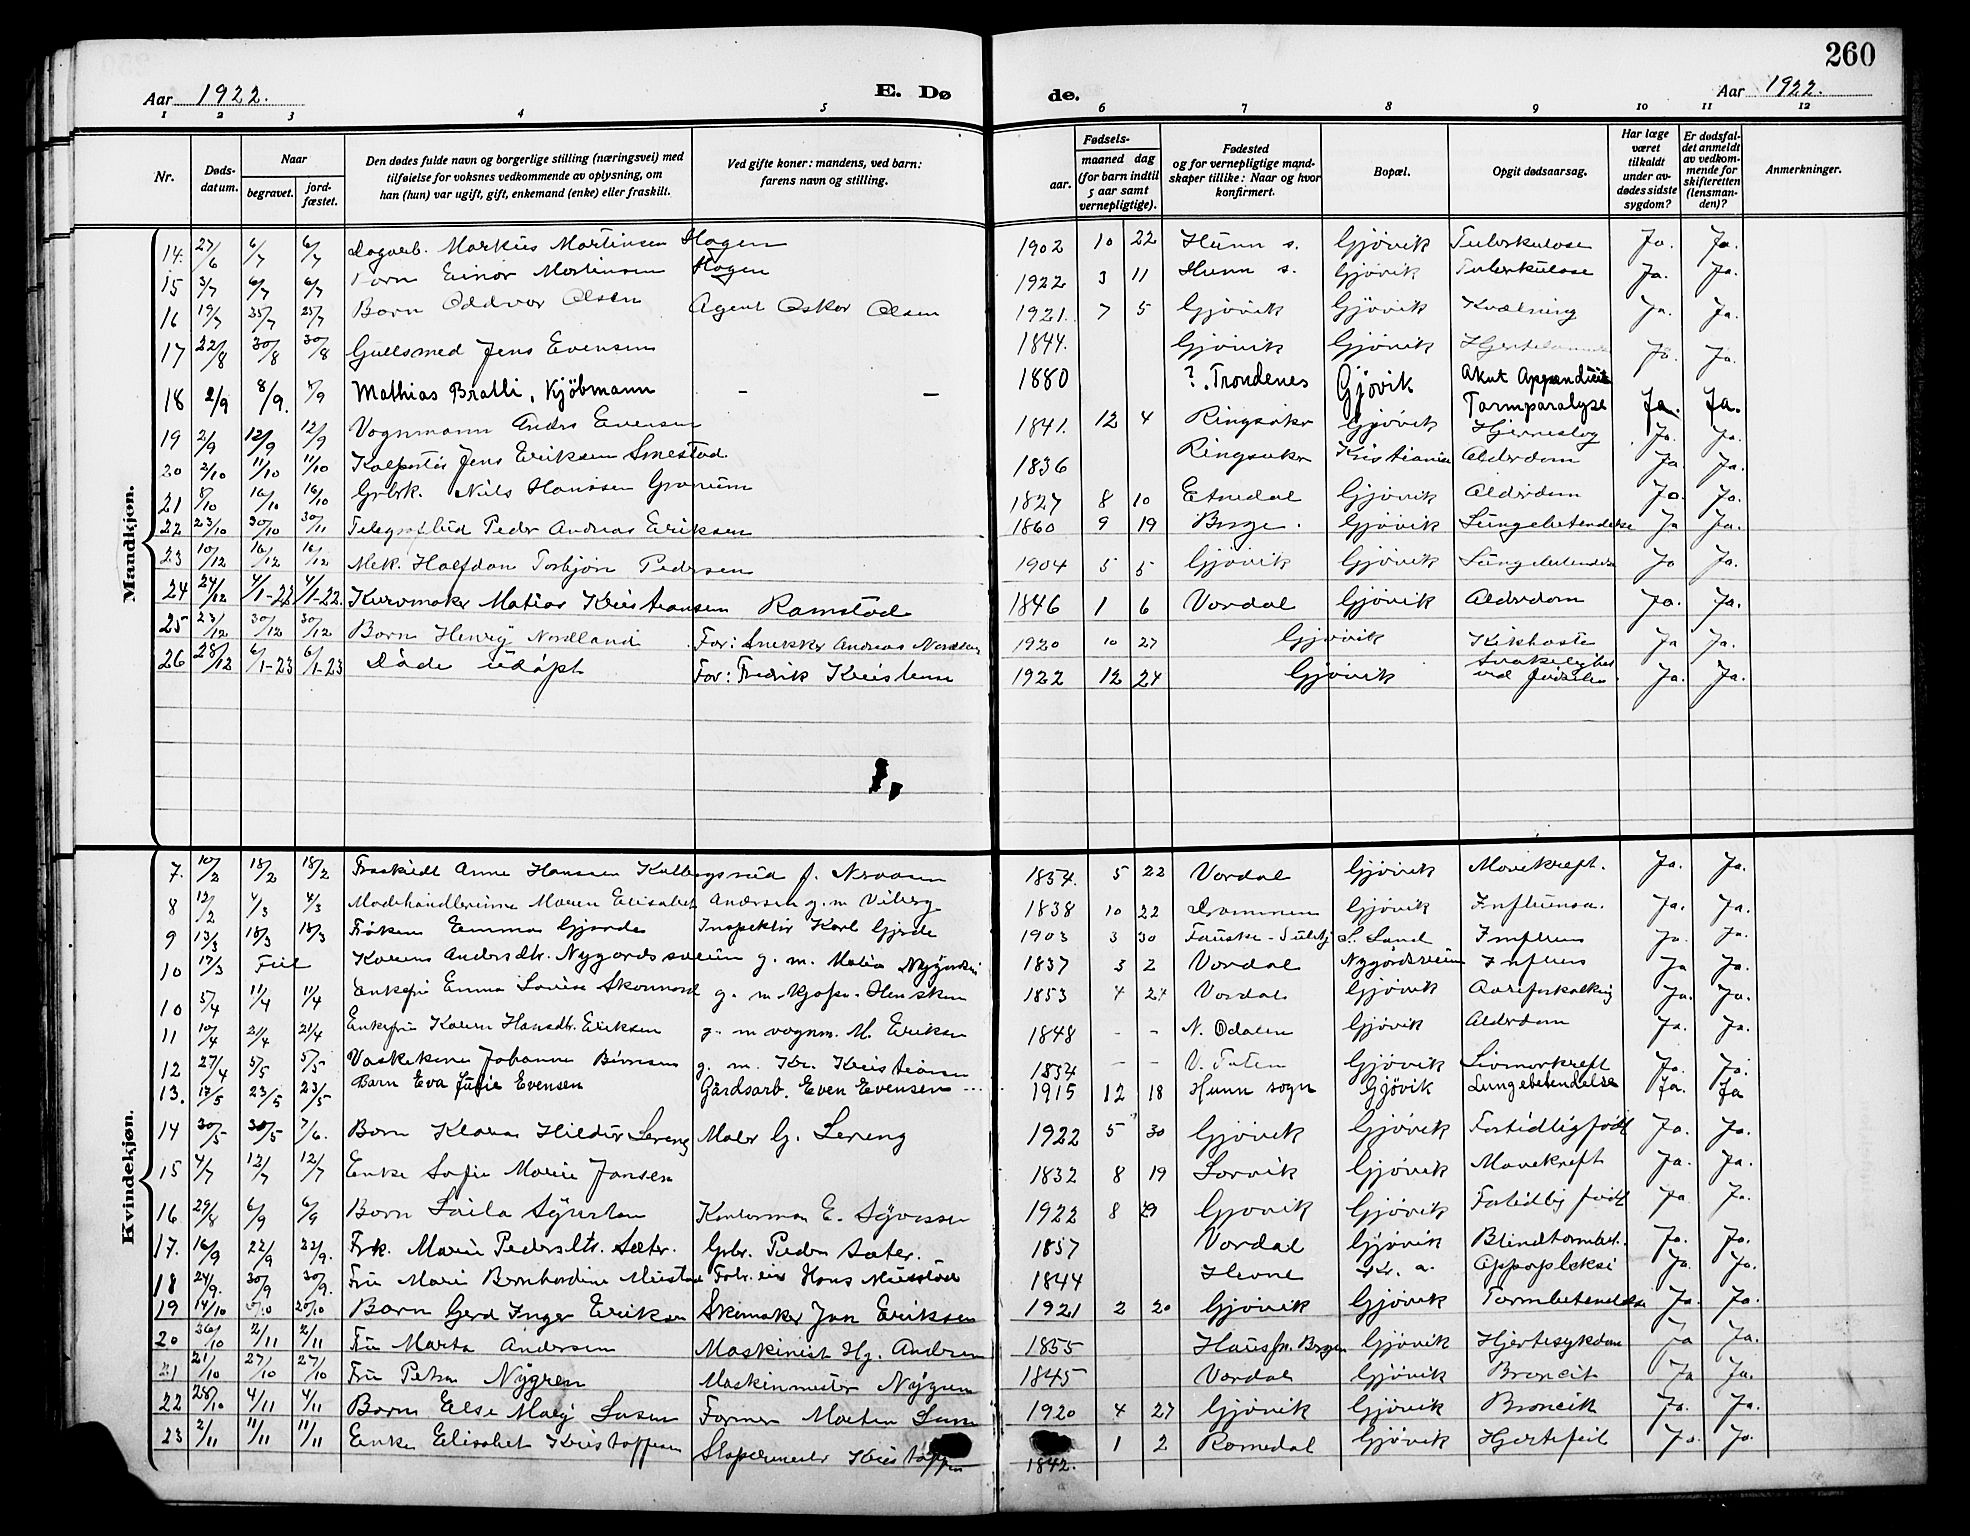 260
Aar 1922. E. Dø de. Aar 1922.
1 2 3 4 5 6 7 8 9 10 11 12
Nr. Døds-datum. Naar begravet. jord-fæstet. Den dødes fulde navn og borgerlige stilling (næringsvei) med tilføielse for voksnes vedkommende av oplysning, om han (hun) var ugift, gift, enkemand (enke) eller fraskilt. Ved gifte koner: mandens, ved barn: farens navn og stilling. Fødsels- aar. maaned dag (for barn indtil 5 aar samt vernepligtige). Fødested og for vernepligtige mand-skaper tillike: Naar og hvor konfirmert. Bopæl. Opgit dødsaarsag. Har læge været tilkaldt under av-dødes sidste sygdom? Er dødsfal-det anmeldt av vedkom-mende for skifteretten (lensman-den)? Anmerkninger.
Mandkjøn.
14. 27/6 6/7 6/7 Dagarb. Markus Martinsen Hagen 1902 10 22 Hunn s. Gjøvik Tuberkulose Ja. Ja.
15 3/7 6/7 6/7 Barn Einar Martinsen Hagen 1922 3 11 Hunn s. Gjøvik Tuberkulose Ja. Ja.
16 19/7 25/7 25/7 Barn Oddvar Olsen Agent Oskar Olsen 1921. 7 5 Gjøvik Gjøvik Kvælning Ja. Ja.
17 22/8 30/8 30/8 Gullsmed Jens Evensen 1844. Gjøvik Gjøvik Ja. Ja.
18 2/9 8/9. 8/9 Mathias Bratli, Kjøbmann - - 1880 ?. Trondenes Gjøvik Akut Appendicit Tarmparalyse Ja. Ja.
19 2/9 12/9 12/9 Vognmann Andrs Evensen 1841. 12 4 Ringsaker Gjøvik Hjerneslag Ja. Ja.
20 2/10 11/10 11/10 Kolportør Jens Eriksen Smestad 1836 Ringsaker Kristiania Alderdom Ja. Ja.
21 8/10 16/10 16/10 Grbrk. Nils Hanssen Granum 1827 8 10 Etnedal Gjøvik Alderdom Ja. Ja.
22 23/10 30/10 30/11 Telegrafbud Peder Andreas Eriksen 1860 9 19 Borge. Gjøvik Lungebetendelse Ja Ja.
23 10/12 16/12 16/12 Mek. Halfdan Torbjørn Pedersen 1904 5 5 Gjøvik Gjøvik Lungebetendelse Ja Ja.
24 24/12 4/1-22 4/1-22. Kurvmaker Matias Kristiansen Ramstad 1846 1 6 Vardal Gjøvik Alderdom Ja. Ja.
25 23/12 30/12 30/12 Barn Henry Nordland Far: Snekker Andreas Nordland 1920 10 27 Gjøvik Kikhoste Ja Ja.
26 28/12 6/1-23 6/1-23 Døde udøpt Far: Fredrik Kristensen 1922 12 24 Gjøvik Svakelighet ved fødselen. Ja. Ja.
Kvindekjøn.
7. 10/2 18/2 18/2 Fraskildt Anne Hansen Kolbergsrud f. 1854. 5 22 Vardal Gjøvik Mavekreft. Ja. Ja.
8 12/2 4/3 4/3 Modehandlerinne Maren Elisabet Andersen g. m. Viberg 1838 10 22 Drammen Gjøvik Influensa. Ja. Ja.
9 13/3 18/3 18/3 Frøken Emma Gjerde Inspektør Karl Gjerde 1903 3 30 Fauske-Sulitj. S. Land Influens Ja. Ja.
10 17/3 Feil Karens Andersdtr. Nygardssveen g. m. Matias 1837 3 2 Vardal Nygardsveen Influens Ja Ja.
10 5/4 11/4 11/4 Enkefru Emma Lovise Skonnord g. m. kjøpm. Hensken 1853 4 24 Vardal Gjøvik Aareforkalkning Ja. Ja.
11 10/4 21/4 21/4 Enkefru Karen Hansdtr. Eriksen g. m. vognm. M. Eriksen 1848 - - N. Odalen Gjøvik Alderdom Ja. Ja.
12 27/4 5/5 5/5 Vaskekone Johanne g. m. Kr. Kristiansen 1854 - - V. Toten Gjøvik Livmorkreft Ja. Ja.
13. 17/5 23/5 23/5 Barn Eva Julie Evensen Gårdsarb. Even Evensen 1915 12 18 Hunn sogn Gjøvik Lungebetendelse Ja. Ja
14 30/5 30/5 7/6. Barn Klara Hildur Lereng Maler G. Lereng 1922 5 30 Gjøvik Gjøvik Fortidligfødt Ja. Ja.
15 4/7 12/7 12/7 Enke Sofie Marie Jansen 1832 8 19 Gjøvik Mavekreft Ja. Ja.
16 29/8 6/9 6/9 Barn Laila Kontorman E. 1922 8 29 Gjøvik Gjøvik Fortidlig født Ja. Ja.
17. 16/9 22/9 22/9. Frk. Marie Pedersdtr. Sæter. Grbr. Peder Sæter. 1857 Vardal Gjøvik Blindtarmbet. Ja. Ja.
18 24/9. 30/9 30/9 Fru Marie Bernhardine Mustad Fabr. eier Hans Mustad 1844 Hevne Kr. a. Appopleksi Ja. Ja.
19 14/10 20/10 20/10 Barn Gerd Inger Eriksen Skomaker Jon Eriksen 1921 2 20 Gjøvik Gjøvik Tarmbetendelse Ja. Ja.
20 26/10 2/11 2/11 Fru Marta Andersen Maskinist Hj. Andersen 1855 Haus pr. Bergen Gjøvik Hjertesykdom Ja Ja.
21 21/10 27/10 27/10 Fru Petra Nygren Maskinmester Nygren 1845 Vardal Gjøvik Broncit Ja Ja.
22 28/10 4/11 4/11 Barn Else Maly Former Morten 1920 4 27 Gjøvik Gjøvik Broncit Ja. Ja.
23 2/11 11/11 11/11 Enke Elisabet Kristoffersen Stopermester Kristoffersen 1842. 1 2 Romedal Gjøvik Hjertefeil Ja. Ja.